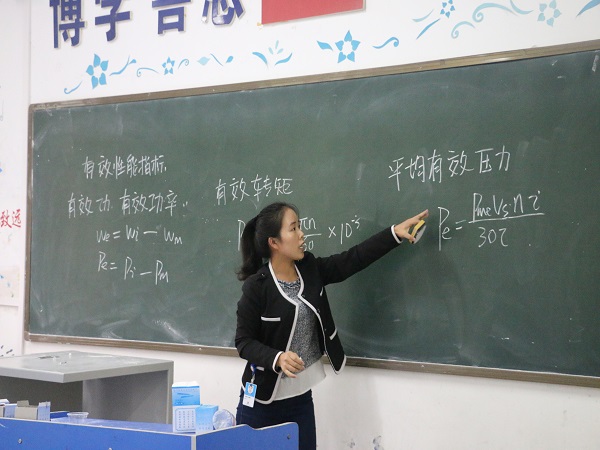 博学
致远
有效性能指标.
有效功 有效功率..
We = Wi − Wm
Pe = Pi − Pm
有效转矩
× 10⁻³
平均有效压力
Pe = Pme Vs n i / 30τ